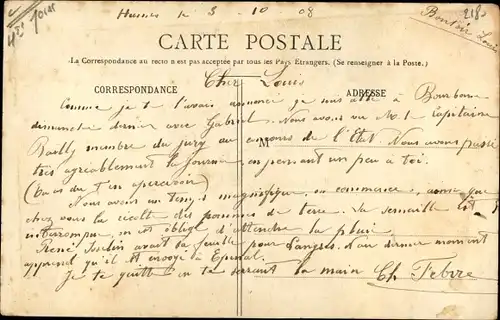 le 3 - 10 08
CARTE POSTALE
La Correspondance au recto n'est pas acceptée par tous les Pays Etrangers. (Se renseigner à la Poste.)
CORRESPONDANCE
ADRESSE
Cher Louis
Comme je te l'avais annoncé je suis allé à Bourbonne
dimanche dernier avec Gabriel. Nous avons vu M. le Capitaine
Bailly membre du jury au concours de l'Etat. Nous avons passé
M
très agréablement la journée en pensant un peu à toi.
(tu as du t'en apercevoir)
Nous avons un temps magnifique, on commence
chez vous la récolte des pommes de terre. La semaille est
interrompue, on est obligé d'attendre la pluie.
René avait sa feuille pour Langres. Au dernier moment
apprend qu'il est envoyé à Epinal.
Je te quitte en te serrant la main Ch. Febvre